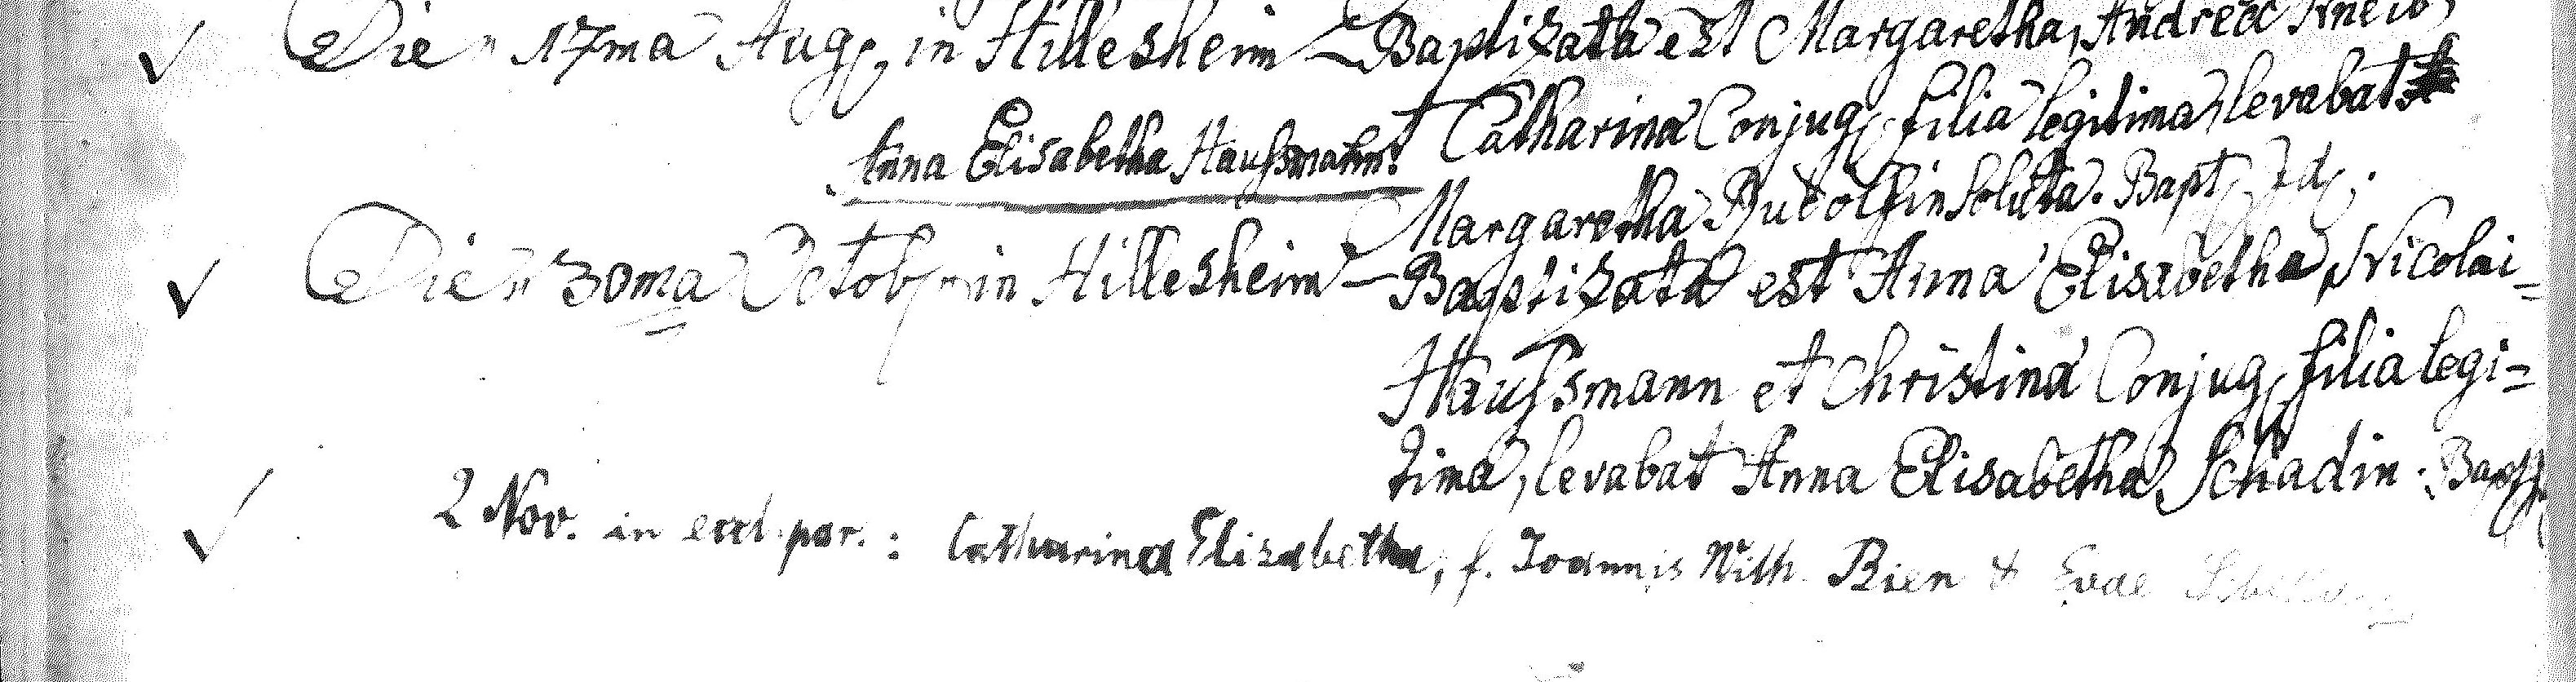 Die 17ma Aug. in Hillesheim - Baptizata est Margaretha, Andreæ Kneib,
Catharina Conjug. filia legitima, levabat
Anna Elisabetha Haußmann.
Margaretha Rudolfin Soluta. Bapt. Id.
Die 30ma Octob. in Hillesheim - Baptizata est Anna Elisabetha, Nicolai=
Haußmann et Christina Conjug. filia legi=
tima, levabat Anna Elisabetha Schadin. Bapt.
2 Nov. in eccl. par. : Catharina Elizabetha, f. Joannis Wilh. Bien & Evae